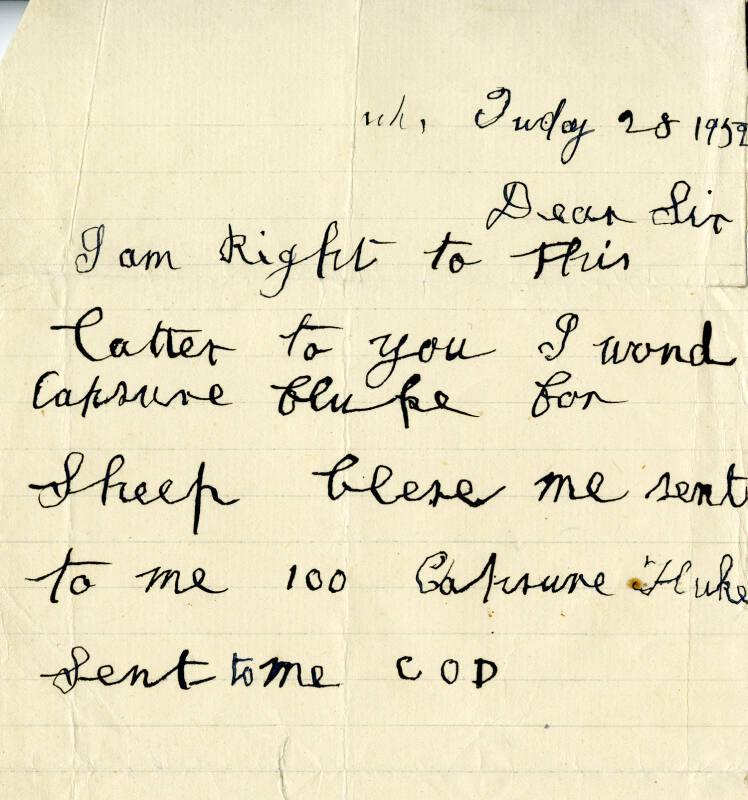 Juday 28 1952
Dear Sir
I am Right to this
Catter to you I wond
Capsure fluke for
Sheep Clese me sent
to me 100 Capsure Fluke
Sent to me COD